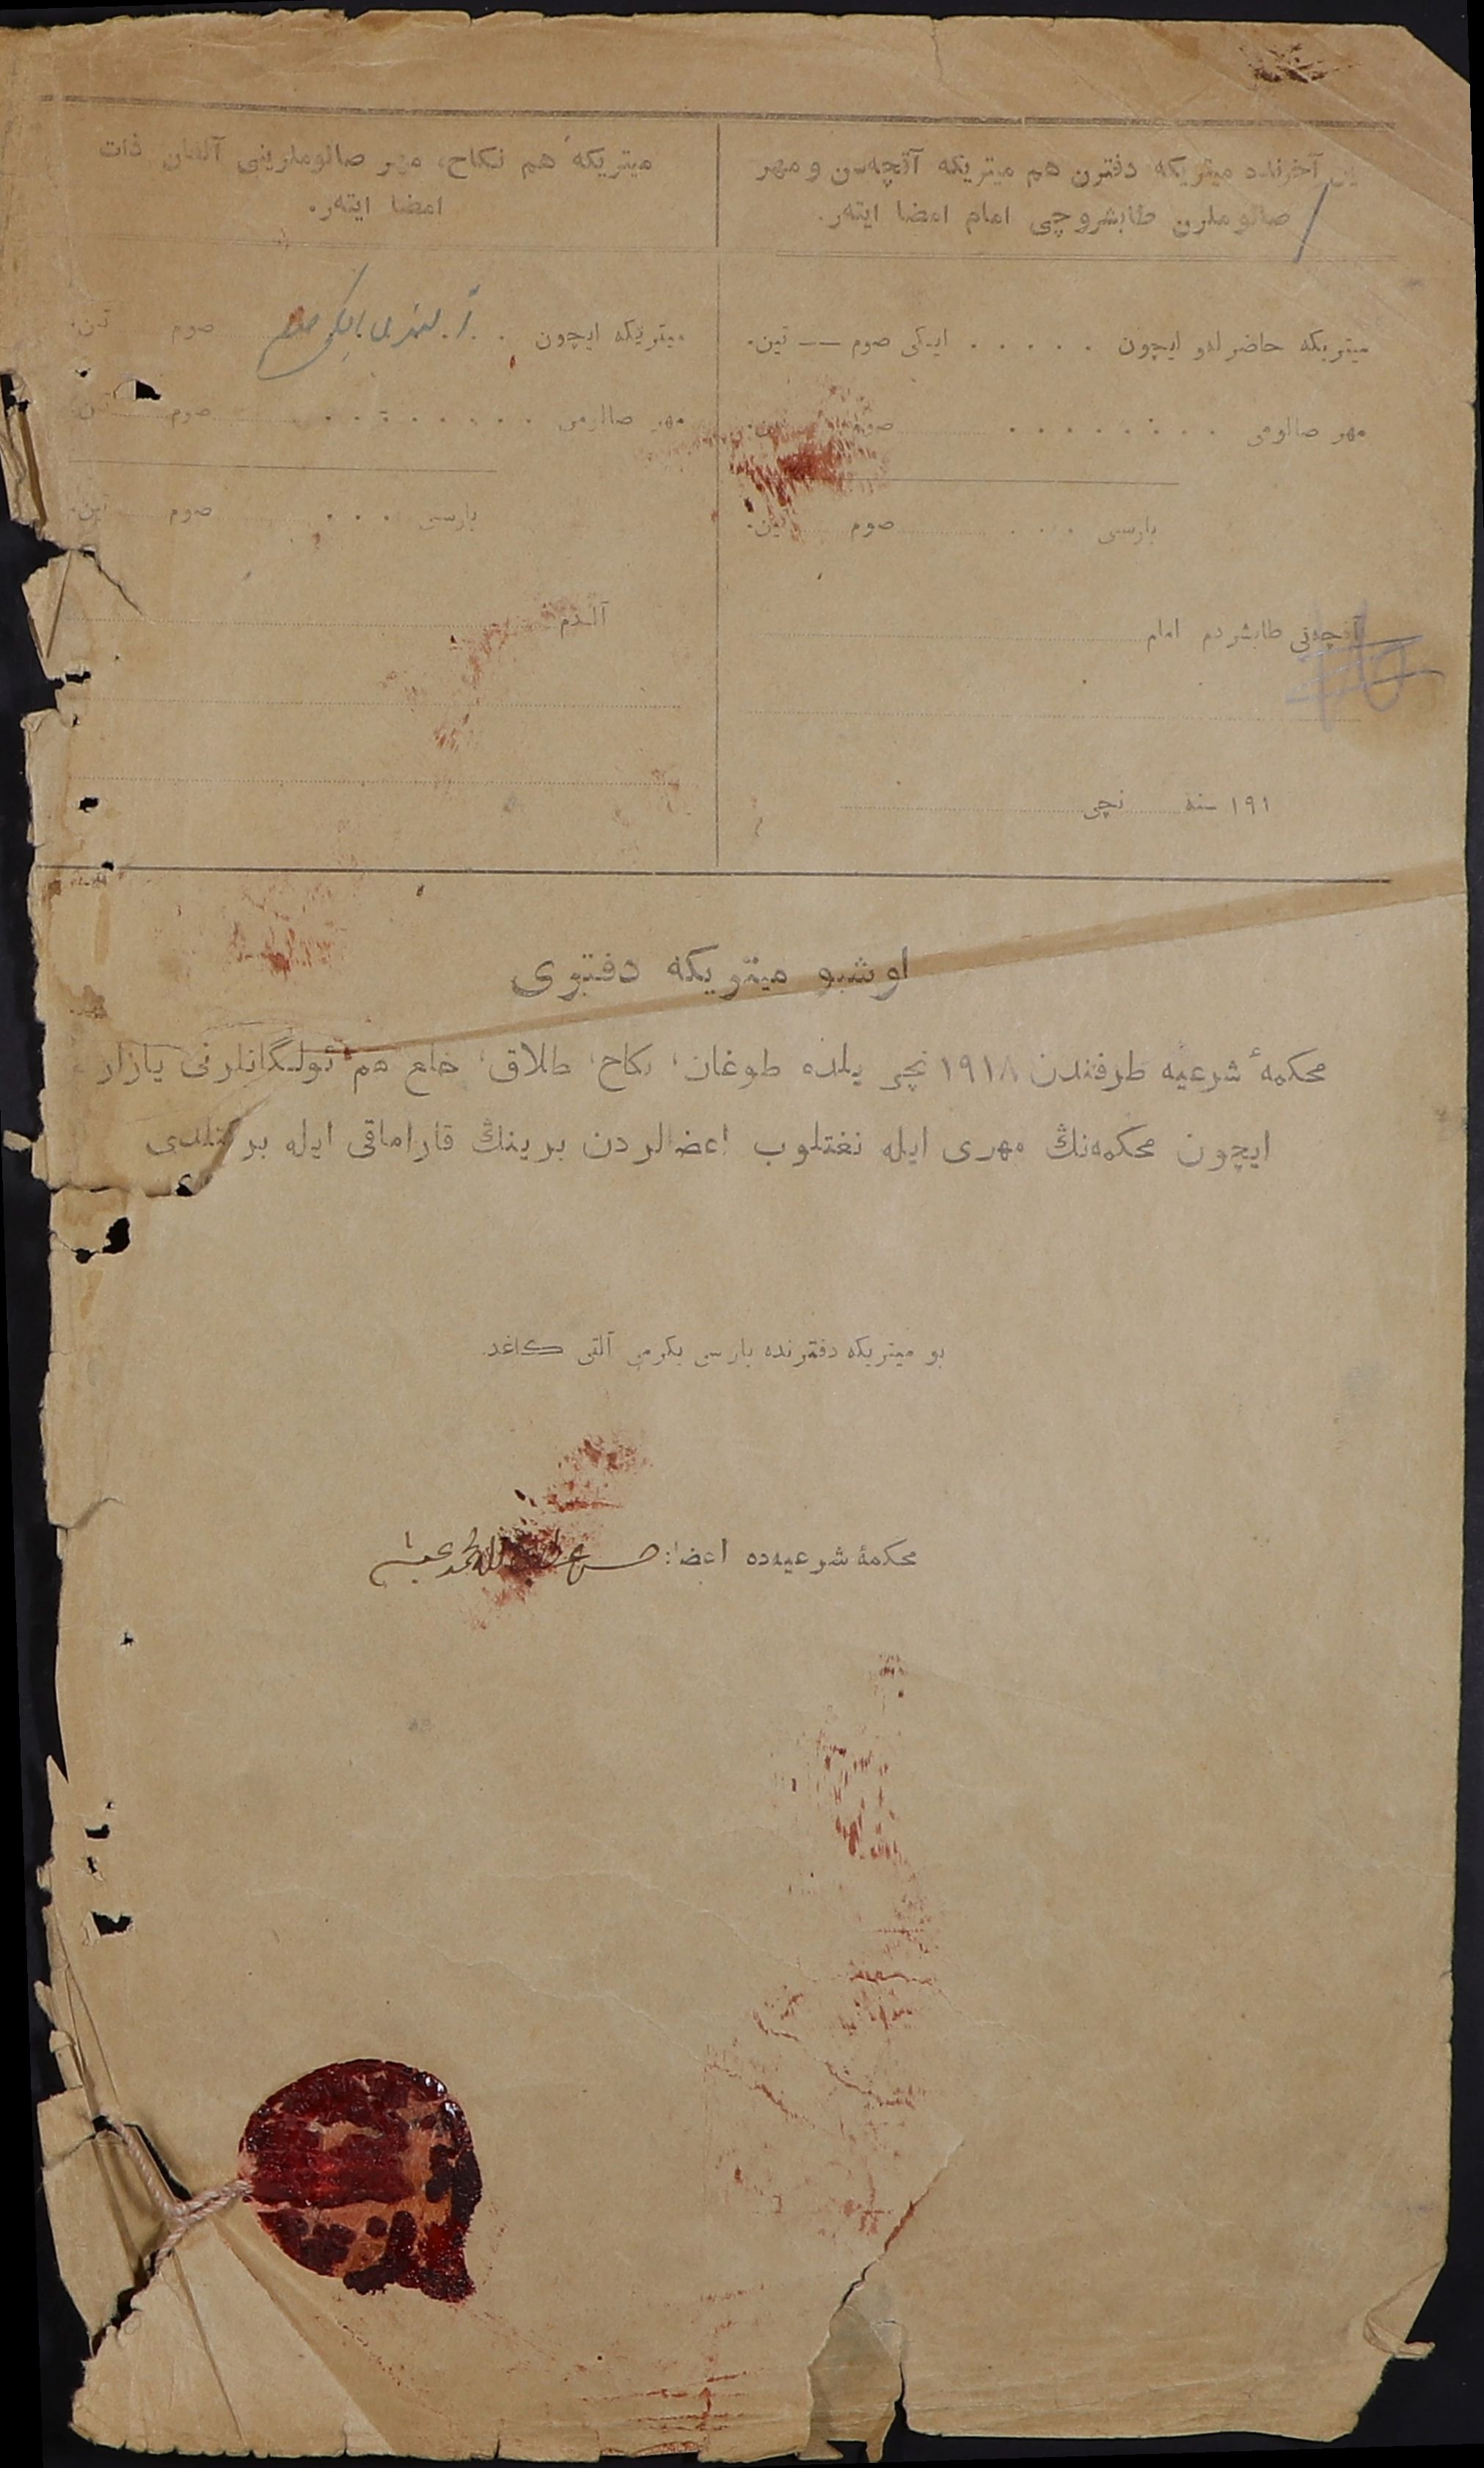 یل آخرنده میتریکه دفترن هم میتریکه آقچه‌سن و مهر
صالوملرن طابشروچی امام امضا ایته‌ر.
میتریکه حاضرله‌و ایچون . . . . . ایکی صوم —— تین.
مهر صالومی . . . . . . . . صوم تین.
یارسی . . . صوم تین.
آقچه‌نی طابشردم امام
۱۹۱ سنه نچی
میتریکه هم نکاح، مهر صالوملرینی آلغان ذات
امضا ایته‌ر.
میتریکه ایچون . . صوم تین.
مهر صالومی . . . . . . . . صوم تین.
بارسی . . . صوم تین.
آلدم
اوشبو میتریکه دفتری
محکمهٔ شرعیه طرفندن ۱۹۱۸ نچی یلده طوغان، نکاح، طلاق، خلع هم ئولگانلرنی یازار
ایچون محکمه‌نڭ مهری ایله نغتلوب اعضالردن برینڭ قاراماقی ایله برکتلدی
بو میتریکه دفترنده بارسی یکرمی آلتی کاغد.
محکمهٔ شرعیه‌ده اعضا: